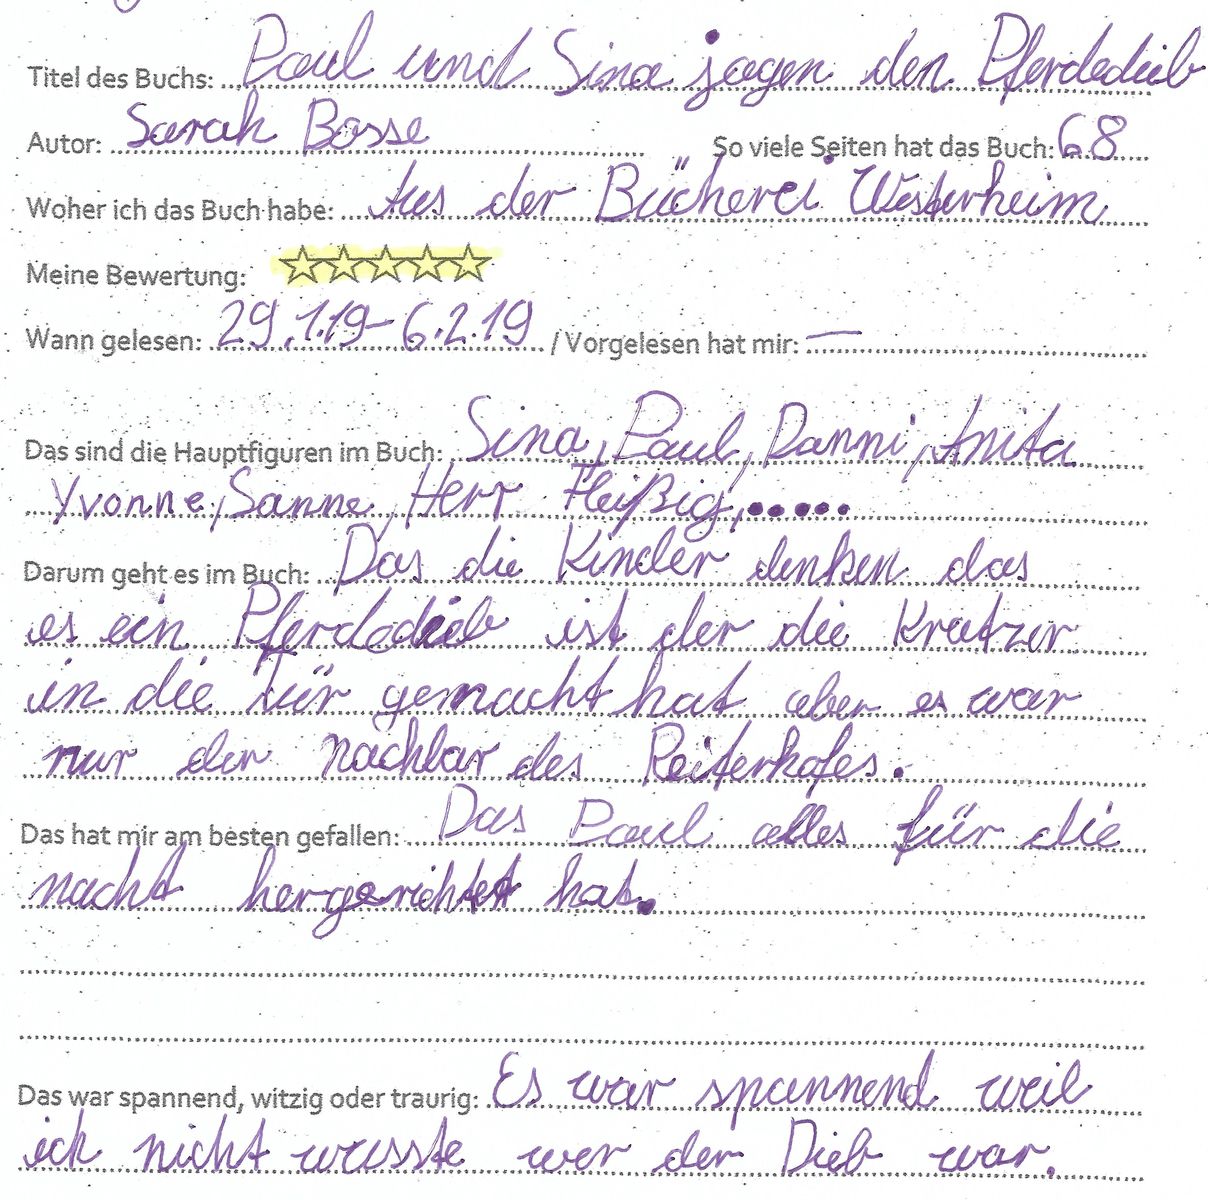 Titel des Buchs: Paul und Sina jagen den Pferdedieb
Autor: Sarah Bosse So viele Seiten hat das Buch: 68
Woher ich das Buch habe: Aus der Bücherei Westerheim
Meine Bewertung:
Wann gelesen: 29.1.19-6.2.19 / Vorgelesen hat mir: —
Das sind die Hauptfiguren im Buch: Sina, Paul, Danni, Anita
Yvonne, Sanne, Herr Fleißig, .....
Darum geht es im Buch: Das die Kinder denken das
es ein Pferdedieb ist der die Kratzer
in die Tür gemacht hat aber es war
nur der nachbar des Reiterhofes.
Das hat mir am besten gefallen: Das Paul alles für die
nacht hergerichtet hat.
Das war spannend, witzig oder traurig: Es war spannend weil
ich nicht wusste wer der Dieb war.